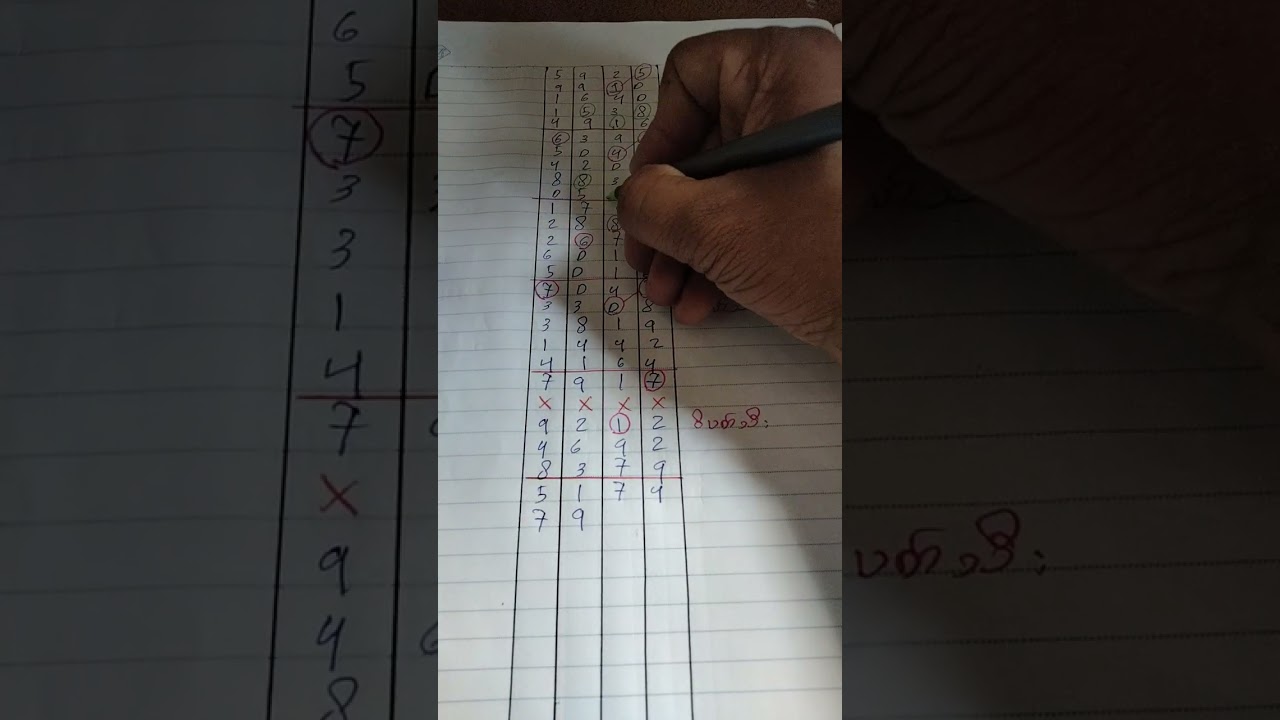 5 9 2 5
9 9 1 0
1 6 4 0
1 5 3 8
4 9 1 6
6 3 9
5 0 9
4 2 0
8 8 3
0 5
1 7
2 8 8
2 6 7
6 0 1
5 0 1
7 0 4
3 3 0 8
3 8 1 9
1 4 4 2
4 1 6 4
7 9 1 7
x x x x
9 2 1 2 ၆ပတ်သီး
4 6 9 2
8 3 7 9
5 1 7 4
7 9